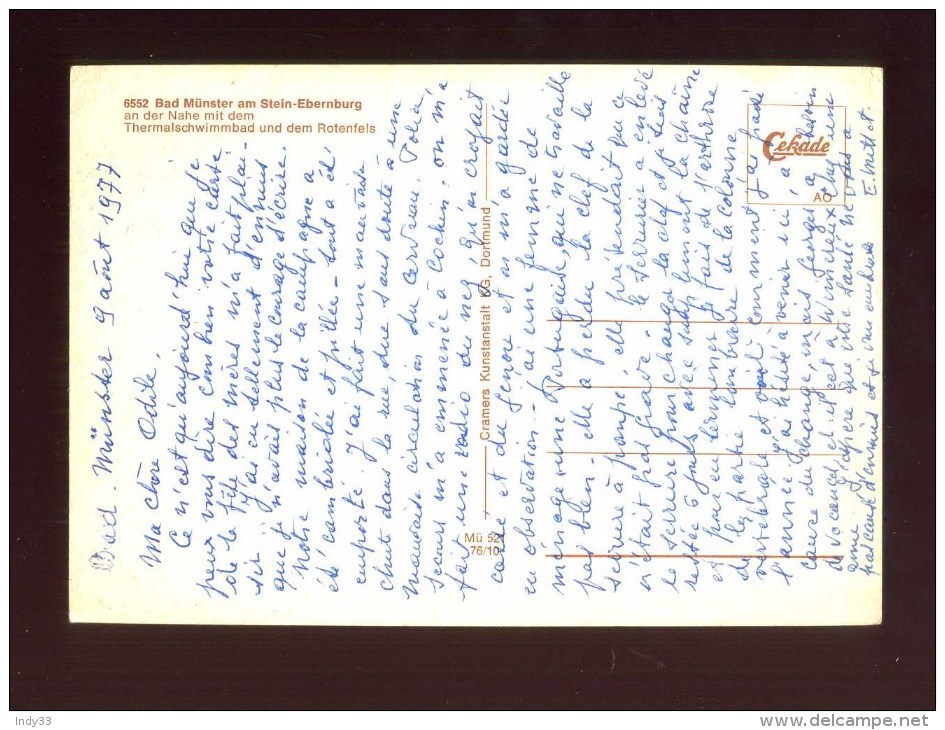 6552 Bad Münster am Stein-Ebernburg
an der Nahe mit dem
Thermalschwimmbad und dem Rotenfels
Cekade
AO
Cramers Kunstanstalt KG, Dortmund
Mü 52
76/10
Bad. Münster 9 août 1977
Ma chère Odile,
Ce n'est qu'aujourd'hui que je
peux vous dire combien votre carte
de la fête des mères m'a fait plai-
sir. J'ai eu tellement d'ennuis
que je n'avais plus le courage d'écrire.
Notre maison de la campagne a
été cambriolée et pillée - tout a été
emporté. J'ai fait une mauvaise
chute dans la rue, due sans doute à une
mauvaise circulation du cerveau. Police
secours m'a emmenée à Cochin, on m'a
fait une radio du nez, qu'on croyait
cassé et du genou et on m'a gardée
en observation. J'ai une femme de
ménage une portugaise, qui ne travaille
pas bien - elle a perdu la clef de la
serrure à pompe, elle prétendait que ce
n'était pas grave. la serrure a enlevé
la serrure pour changer la clef et je suis
restée 6 jours avec simplement la chaîne
et pour terminer je fais de l'arthrose
de la partie lombaire de la colonne
vertébrale, et voilà comment j'ai passé
l'année. J'ai hésité à venir ici, à
cause du change, mais Serge a besoin
de vacances, et il est à Wimereux chez une
amie. J'espère que votre santé ne vous a
pas causé d'ennuis et je vous embrasse
E. Mettot.
Indy33
www.delcampe.net